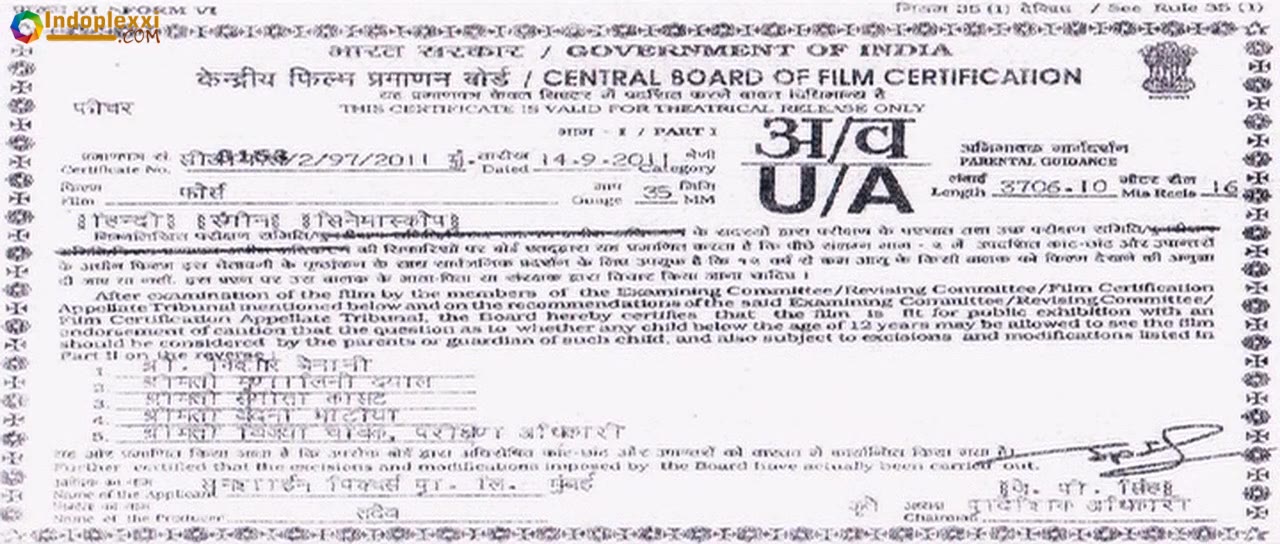 Indoplexxi
.COM
FORM VI
नियम 35 (1) देखिए / See Rule 35 (1)
भारत सरकार / GOVERNMENT OF INDIA
केन्द्रीय फिल्म प्रमाणन बोर्ड / CENTRAL BOARD OF FILM CERTIFICATION
यह प्रमाणपत्र केवल थिएटर में प्रदर्शित करने बाबत विधिमान्य है
फीचर
THIS CERTIFICATE IS VALID FOR THEATRICAL RELEASE ONLY
भाग - I / PART I
अ/व
U/A
अभिभावक मार्गदर्शन
PARENTAL GUIDANCE
प्रमाणपत्र सं. /2/97/2011 मुं. तारीख 14-9-2011 श्रेणी
Certificate No. Dated Category
लंबाई 3706.10 मीटर रील 16
Length Mts Reels
फिल्म फोर्स माप 35 मिमि
Film Guage MM
हिन्दी रंगीन सिनेमास्कोप
निम्नलिखित परीक्षण समिति/ के सदस्यों द्वारा परीक्षण के पश्चात तथा उक्त परीक्षण समिति/
की सिफारिशों पर बोर्ड एतद्द्वारा यह प्रमाणित करता है कि पीछे संलग्न भाग - २ में उपदर्शित कांट-छांट और उपान्तरों
के अधीन फिल्म इस चेतावनी के पृष्ठांकन के साथ सार्वजनिक प्रदर्शन के लिए उपयुक्त है कि १२ वर्ष से कम आयु के किसी बालक को फिल्म देखने की अनुज्ञा
दी जाय या नहीं, इस प्रश्न पर उस बालक के माता-पिता या संरक्षक द्वारा विचार किया जाना चाहिए।
After examination of the film by the members of the Examining Committee/Revising Committee/Film Certification
Appellate Tribunal mentioned below and on the recommendations of the said Examining Committee/Revising Committee/
Film Certification Appellate Tribunal, the Board hereby certifies that the film is fit for public exhibition with an
endorsement of caution that the question as to whether any child below the age of 12 years may be allowed to see the film
should be considered by the parents or guardian of such child, and also subject to excisions and modifications listed in
Part II on the reverse
1. श्री. किशोर
2. श्रीमती मृणालिनी दयाल
3. श्रीमती संगीता
4. श्रीमती वंदना भाटीया
5. श्रीमती विजया चावक, परीक्षण अधिकारी
यह और प्रमाणित किया जाता है कि उपरोक्त बोर्ड द्वारा अधिरोपित कांट-छांट और उपान्तरों को वास्तव में कार्यान्वित किया गया है।
Further certified that the excisions and modifications imposed by the Board have actually been carried out.
आवेदक का नाम सनशाईन पिक्चर्स प्रा. लि. मुंबई
Name of the Applicant
जे. पी. सिंह
निर्माता का नाम सदैव कृते अध्यक्ष प्रादेशिक अधिकारी
Name of the Producer Chairman